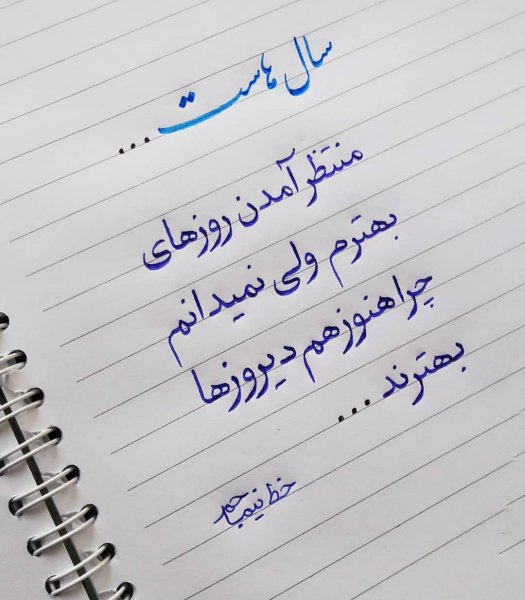 سال هاست...
منتظر آمدن روزهای
بهترم ولی نمیدانم
چرا هنوز هم دیروزها
بهترند...
خط نیما